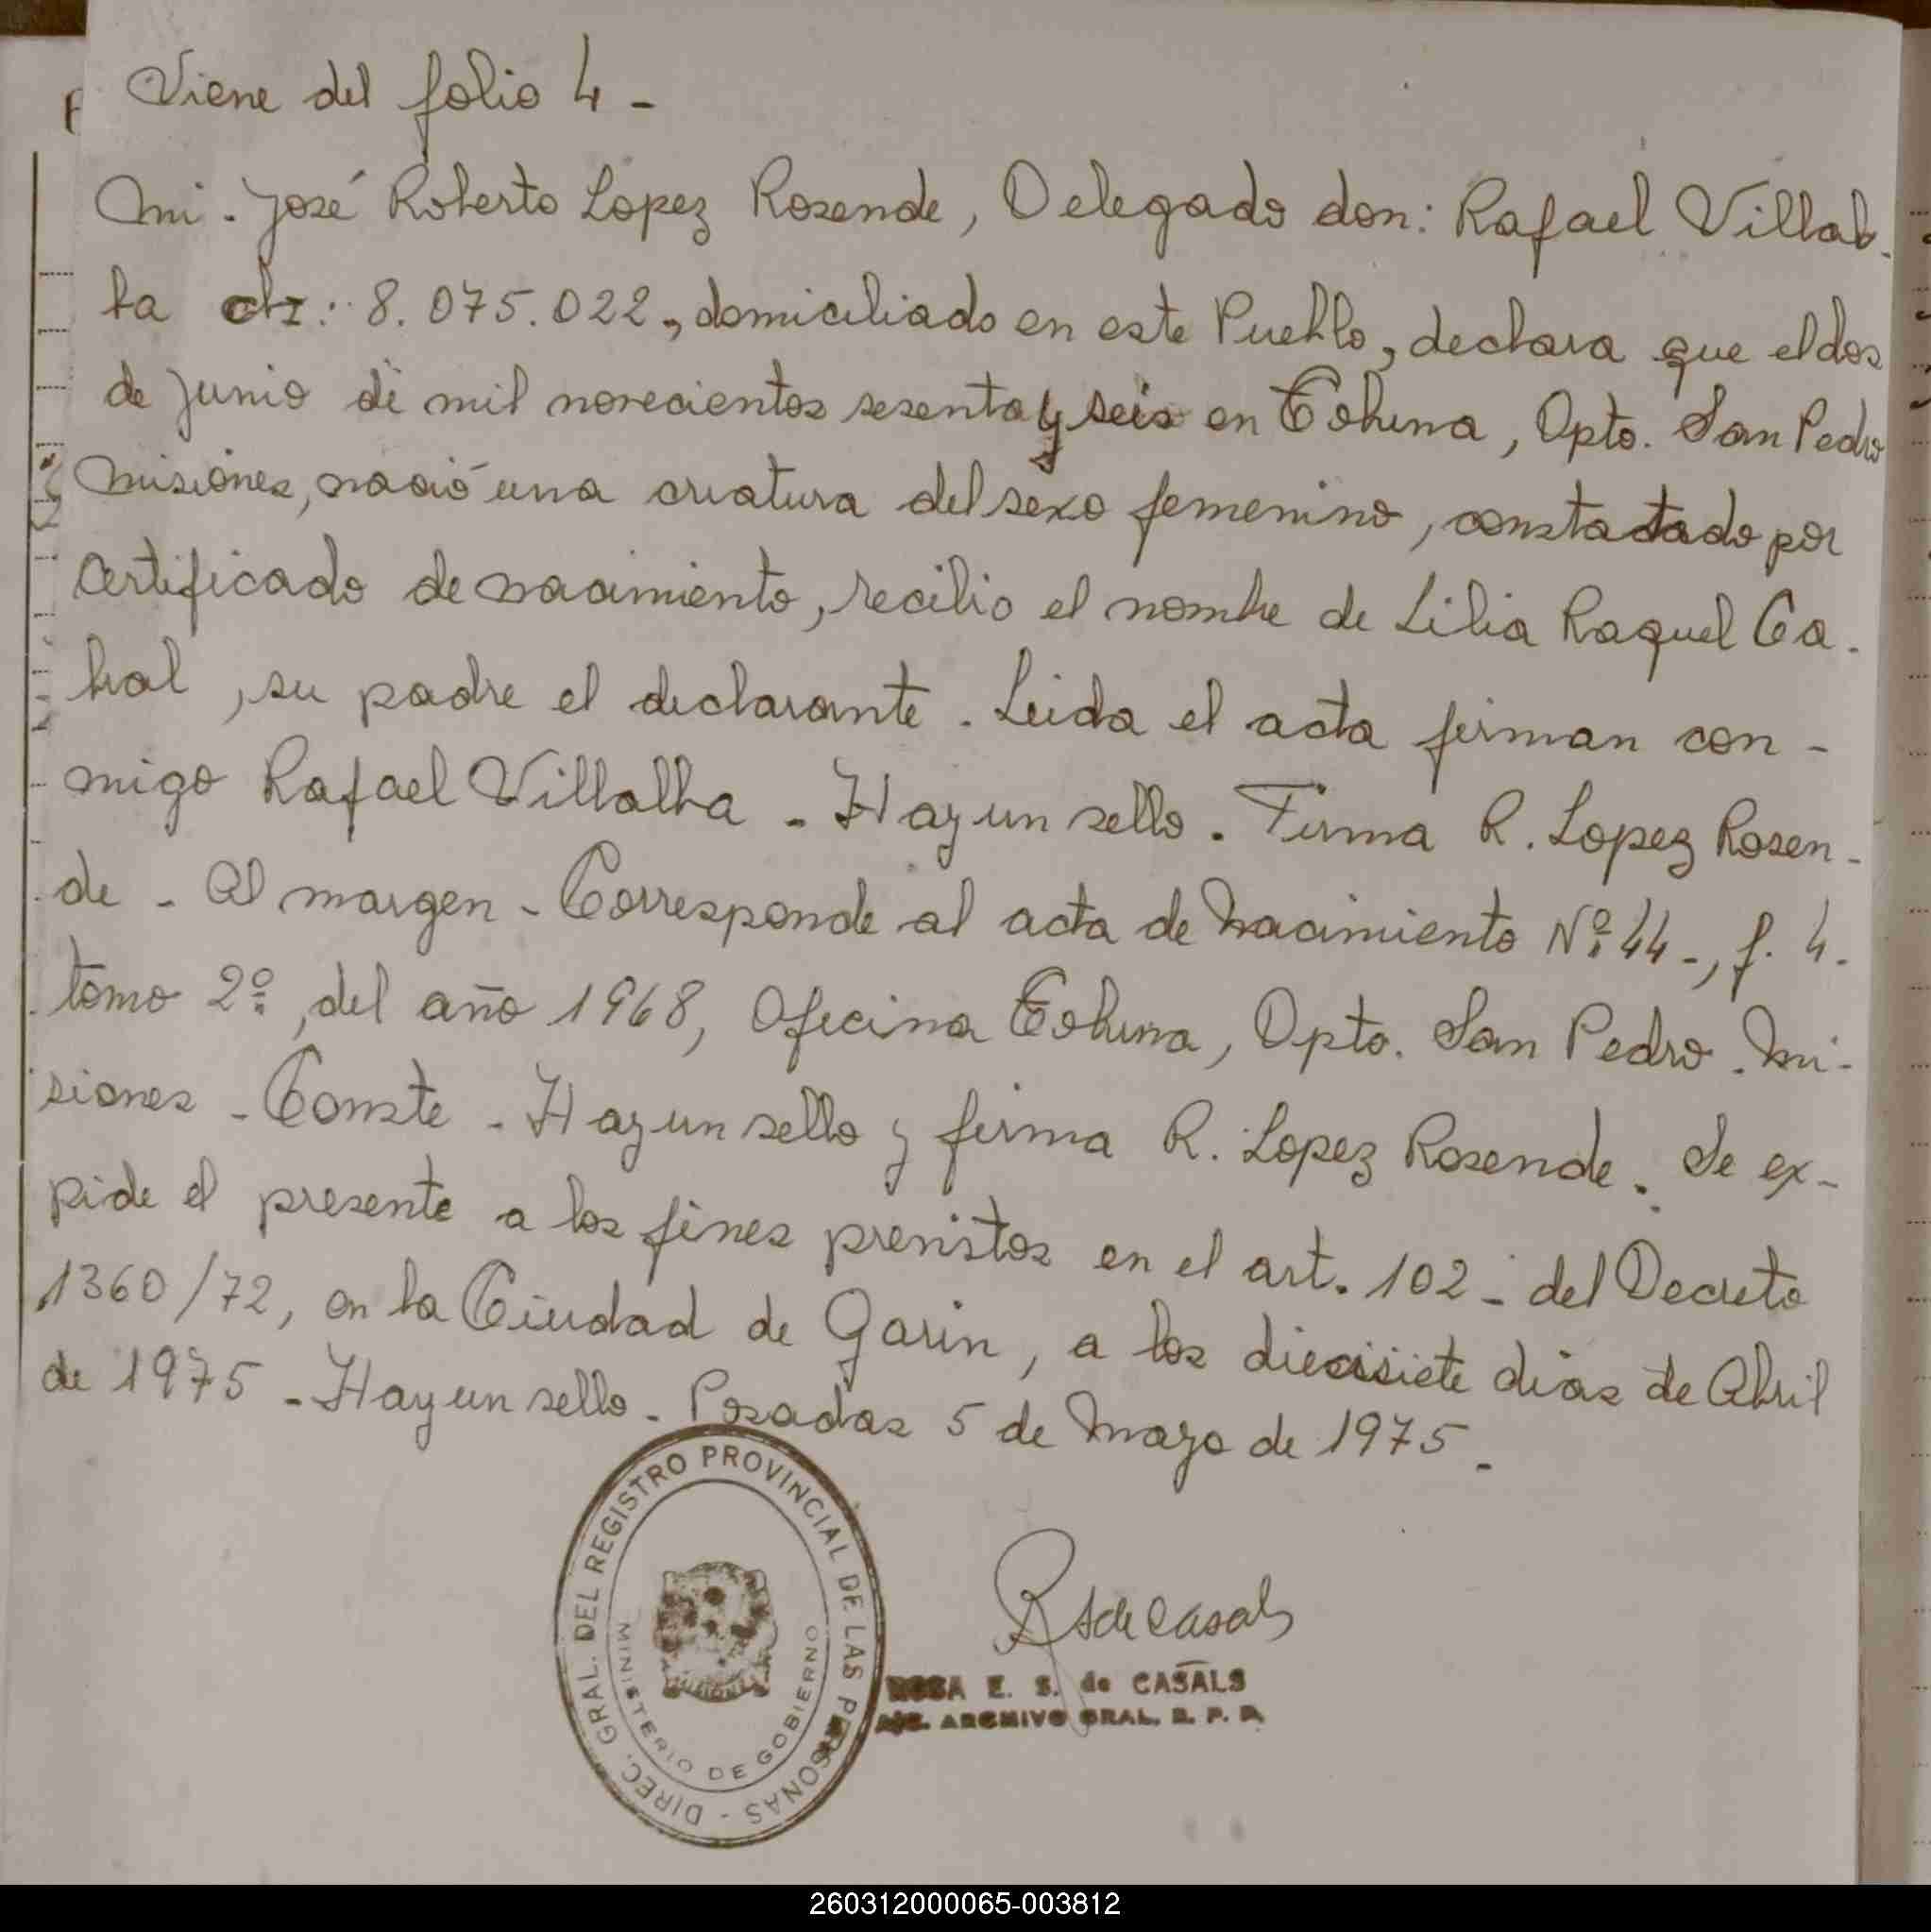 Viene del folio 4 -
mi - José Roberto Lopez Rosende, Delegado don: Rafael Villal-
ba CI: 8.075.022, domiciliado en este Pueblo, declara que el dos
de Junio de mil novecientos sesenta y seis en Tobuna, Dpto. San Pedro
Misiones, nació una criatura del sexo femenino, constatado por
certificado de nacimiento, recibio el nombre de Lilia Raquel Ca-
bral, su padre el declarante. Leida el acta firman con-
migo Rafael Villalba - Hay un sello. Firma R. Lopez Rosen-
de - Al margen - Corresponde al acta de Nacimiento Nº 44 -, f. 4-
tomo 2º, del año 1968, Oficina Tobuna, Dpto. San Pedro. Mi-
siones - Conste - Hay un sello y firma R. Lopez Rosende. Se ex-
pide el presente a los fines previstos en el art. 102 - del Decreto
1360/72, en la Ciudad de Garin, a los diecisiete dias de Abril
de 1975 - Hay un sello - Posadas 5 de Mayo de 1975 -
DIREC. GRAL. DEL REGISTRO PROVINCIAL DE LAS PERSONAS -
MINISTERIO DE GOBIERNO
R S de Casals
ROSA E. S. de CASALS
A/C. ARCHIVO GRAL. R. P. P.
260312000065-003812